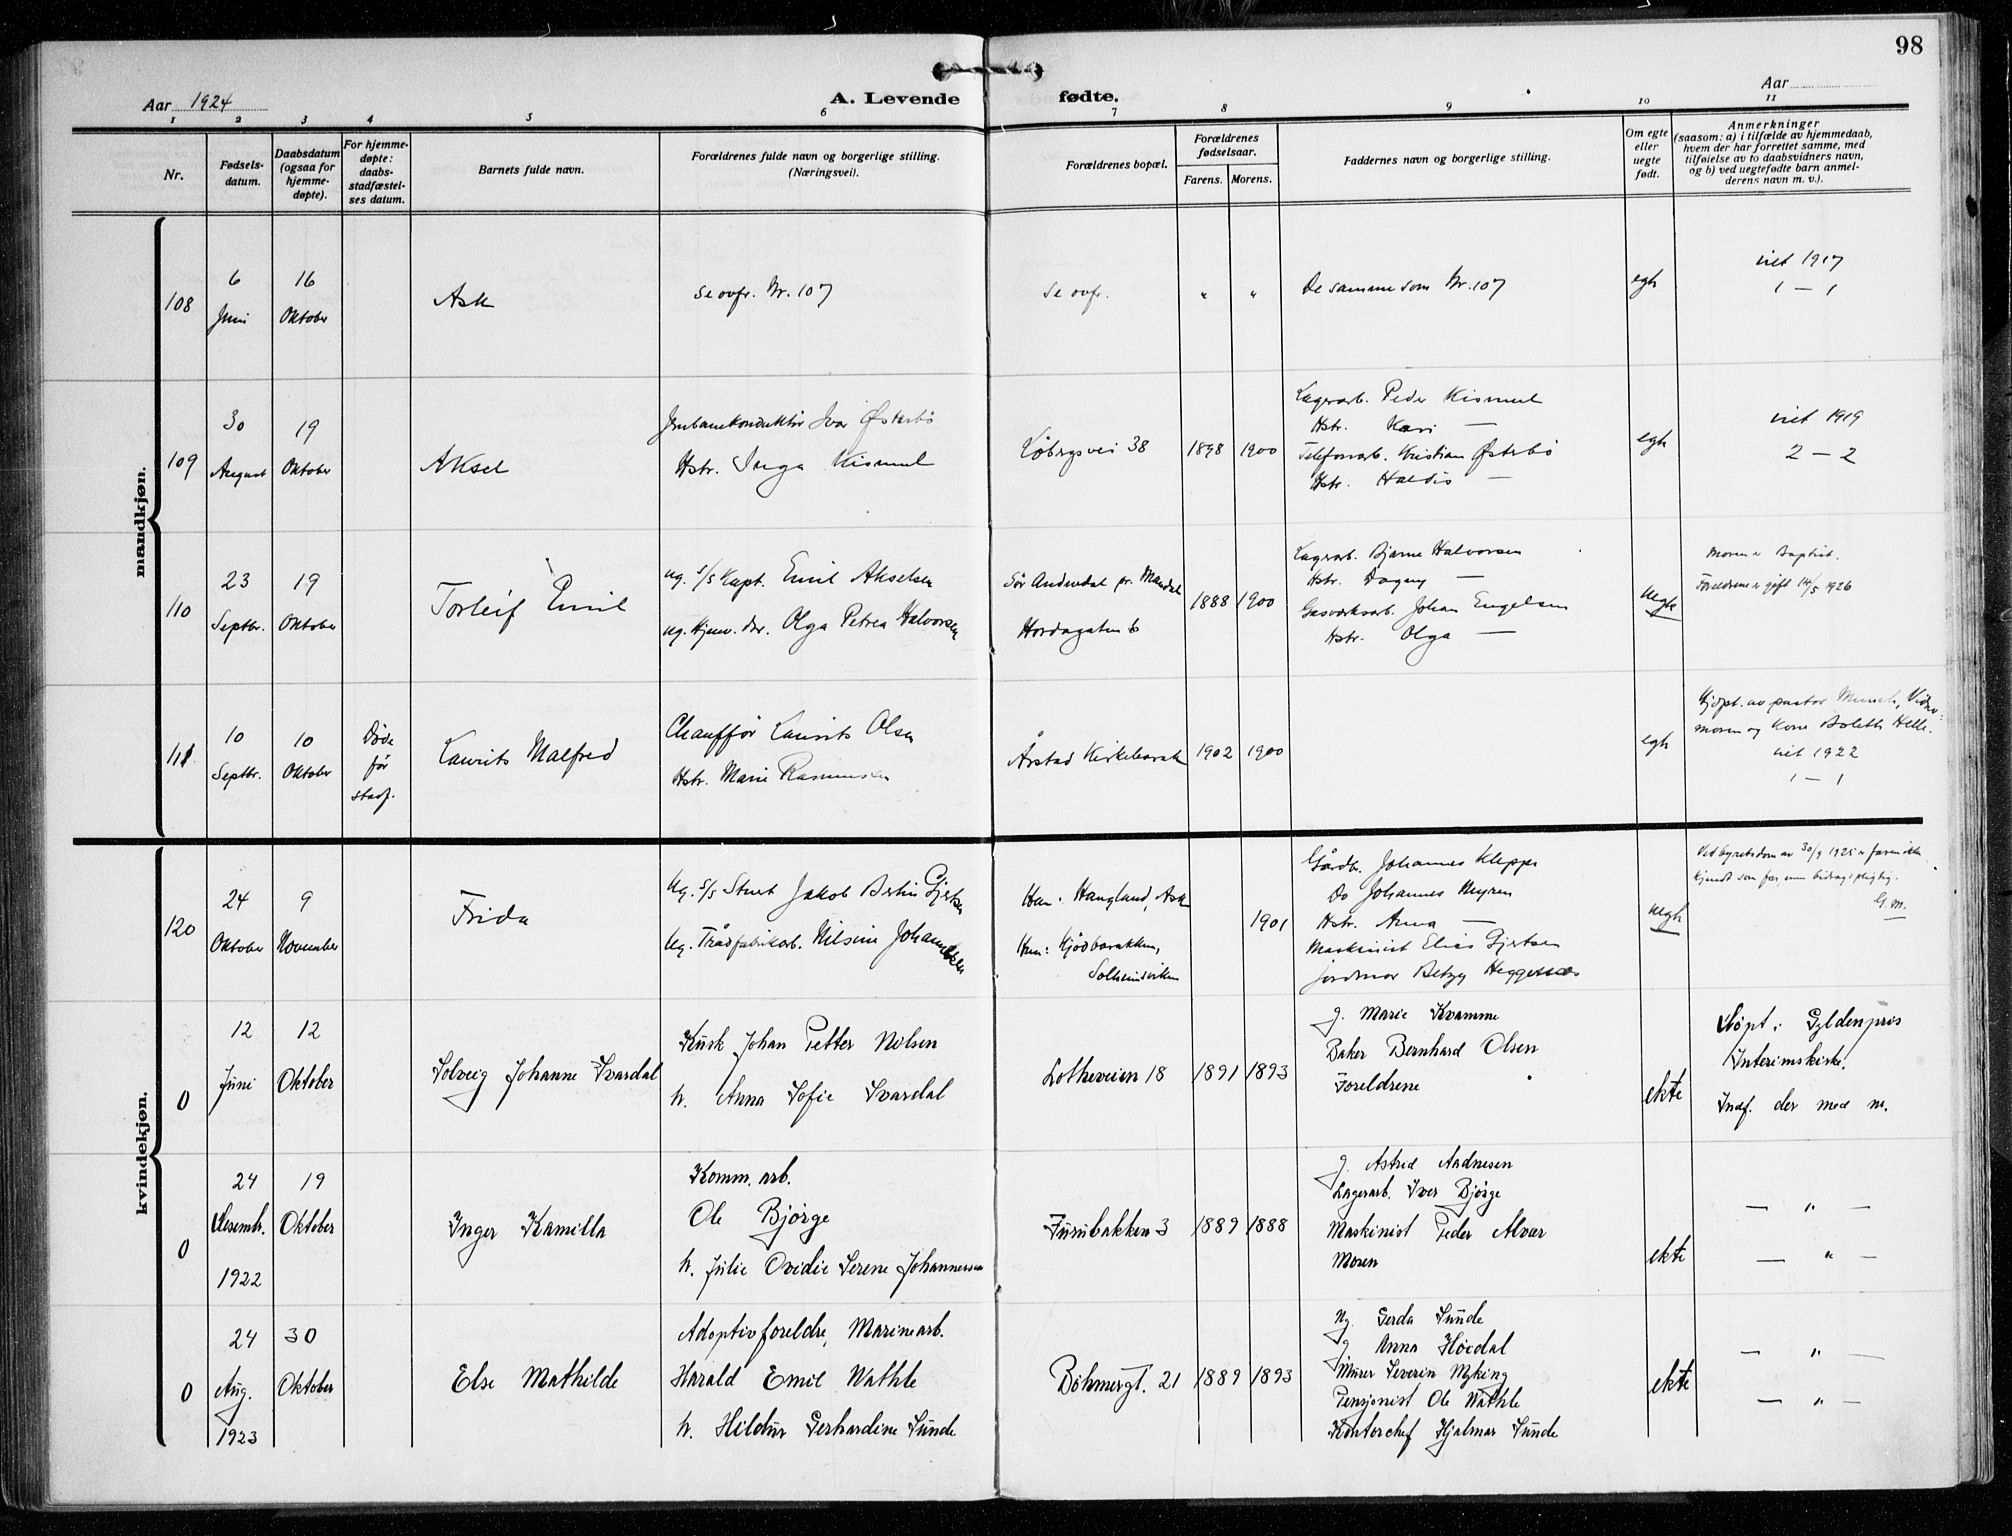 98
Aar 1924
A. Levende fødte.
Aar
1 2 3 4 5 6 7 8 9 10 11
Nr.
Fødsels-
datum.
Daabsdatum
(ogsaa for
hjemme-
døpte).
For hjemme-
døpte:
daabs-
stadfæstel-
ses datum.
Barnets fulde navn.
Forældrenes fulde navn og borgerlige stilling.
(Næringsvei).
Forældrenes bopæl.
Forældrenes
fødselsaar.
Farens. Morens.
Faddernes navn og borgerlige stilling.
Om egte
eller
uegte
født.
Anmerkninger
(saasom: a) i tilfælde av hjemmedaab,
hvem der har forrettet samme, med
tilføielse av to daabsvidners navn,
og b) ved uegtefødte barn anmel-
derens navn m. v.).
mandkjøn.
108
6
Juni
16
Oktober
Ask
Se ovfr. Nr. 107
Se ovfr.
" "
De samme som Nr. 107
egte
viet 1917
1 — 1
109
30
August
19
Oktober
Aksel
Jernbanekonduktør Ivar Østerbø
Hstr. Inga Kismul
Løbergsvei 38
1898 1900
Lagerarb. Peder Kismul
Hstr. Kari —
Telefonarb. Kristian Østerbø
Hstr. Haldis —
egte
viet 1919
2 — 2
110
23
Septbr.
19
Oktober
Torleif Emil
Ug. S/S Kapt. Emil Akselsen
Ug. Hjem. dr. Olga Petrea Halvorsen
Sør Audnedal pr. Mandal
Hordagaten 6
1888 1900
Lagerarb. Bjarne Halvorsen
Hstr. Dagny —
Gasværksarb. Johan Engelsen
Hstr. Olga —
uegte
Moren er Baptist.
Foreldrene gift 14/5 1926
111
10
Septbr.
10
Oktober
Døde
før
stadf.
Laurits Malfred
Chauffør Laurits Olsen
Hstr. Marie Rasmussen
Årstad Kirkebarak
1902 1900
egte
Hjdpt. av pastor Munch, Vidner:
moren og Kone Bolette Helle.
viet 1922
1 — 1
kvindekjøn.
120
24
Oktober
9
November
Frida
Ug. S/S Stuert Jakob Bertin Gjertsen
Ug. Trådfabrikarb. Nilsine Johannessen
Han: Haugland, Ask
Hun: Kjødbarakken,
Solheimsviken
1901
Gårdb. Johannes Kleppe
Do Johannes Myren
Hstr. Anna —
Maskinist Elias Gjertsen
Jordmor Betzy Heggesnæs
uegte
Ved byretsdom av 30/9 1925 er faren ikke
kjendt som far, men bidragspligtig.
G.M.
0
12
Juni
12
Oktober
Solveig Johanne Svardal
Kusk Johan Petter Nilsen
h. Anna Sofie Svardal
Lotheveien 18
1891 1893
g. Marie Kvamme
Baker Bernhard Olsen
Foreldrene
ekte
Døpt i Gyldenpris
Interimskirke.
Indf. der med nr.
0
24
Desembr.
1922
19
Oktober
Inger Kamilla
Komm. arb.
Ole Bjørge
h. Julie Ovidie Serene Johannessen
Furubakken 3
1889 1888
g. Astrid Aadnesen
Lagerarb. Iver Bjørge
Maskinist Peder Alvar
Moren
ekte
— " —
— " —
0
24
Aug.
1923
30
Oktober
Else Mathilde
Adoptivforeldre, Marinearb.
Harald Emil Wathle
h. Hildur Gerhardine Sunde
Böhmergt. 21
1889 1893
Ug. Gerda Sunde
g. Anna Høidal
Murer Severin Myking
Pensjonist Ole Wathle
Kontorchef Hjalmar Sunde
ekte
— " —
— " —